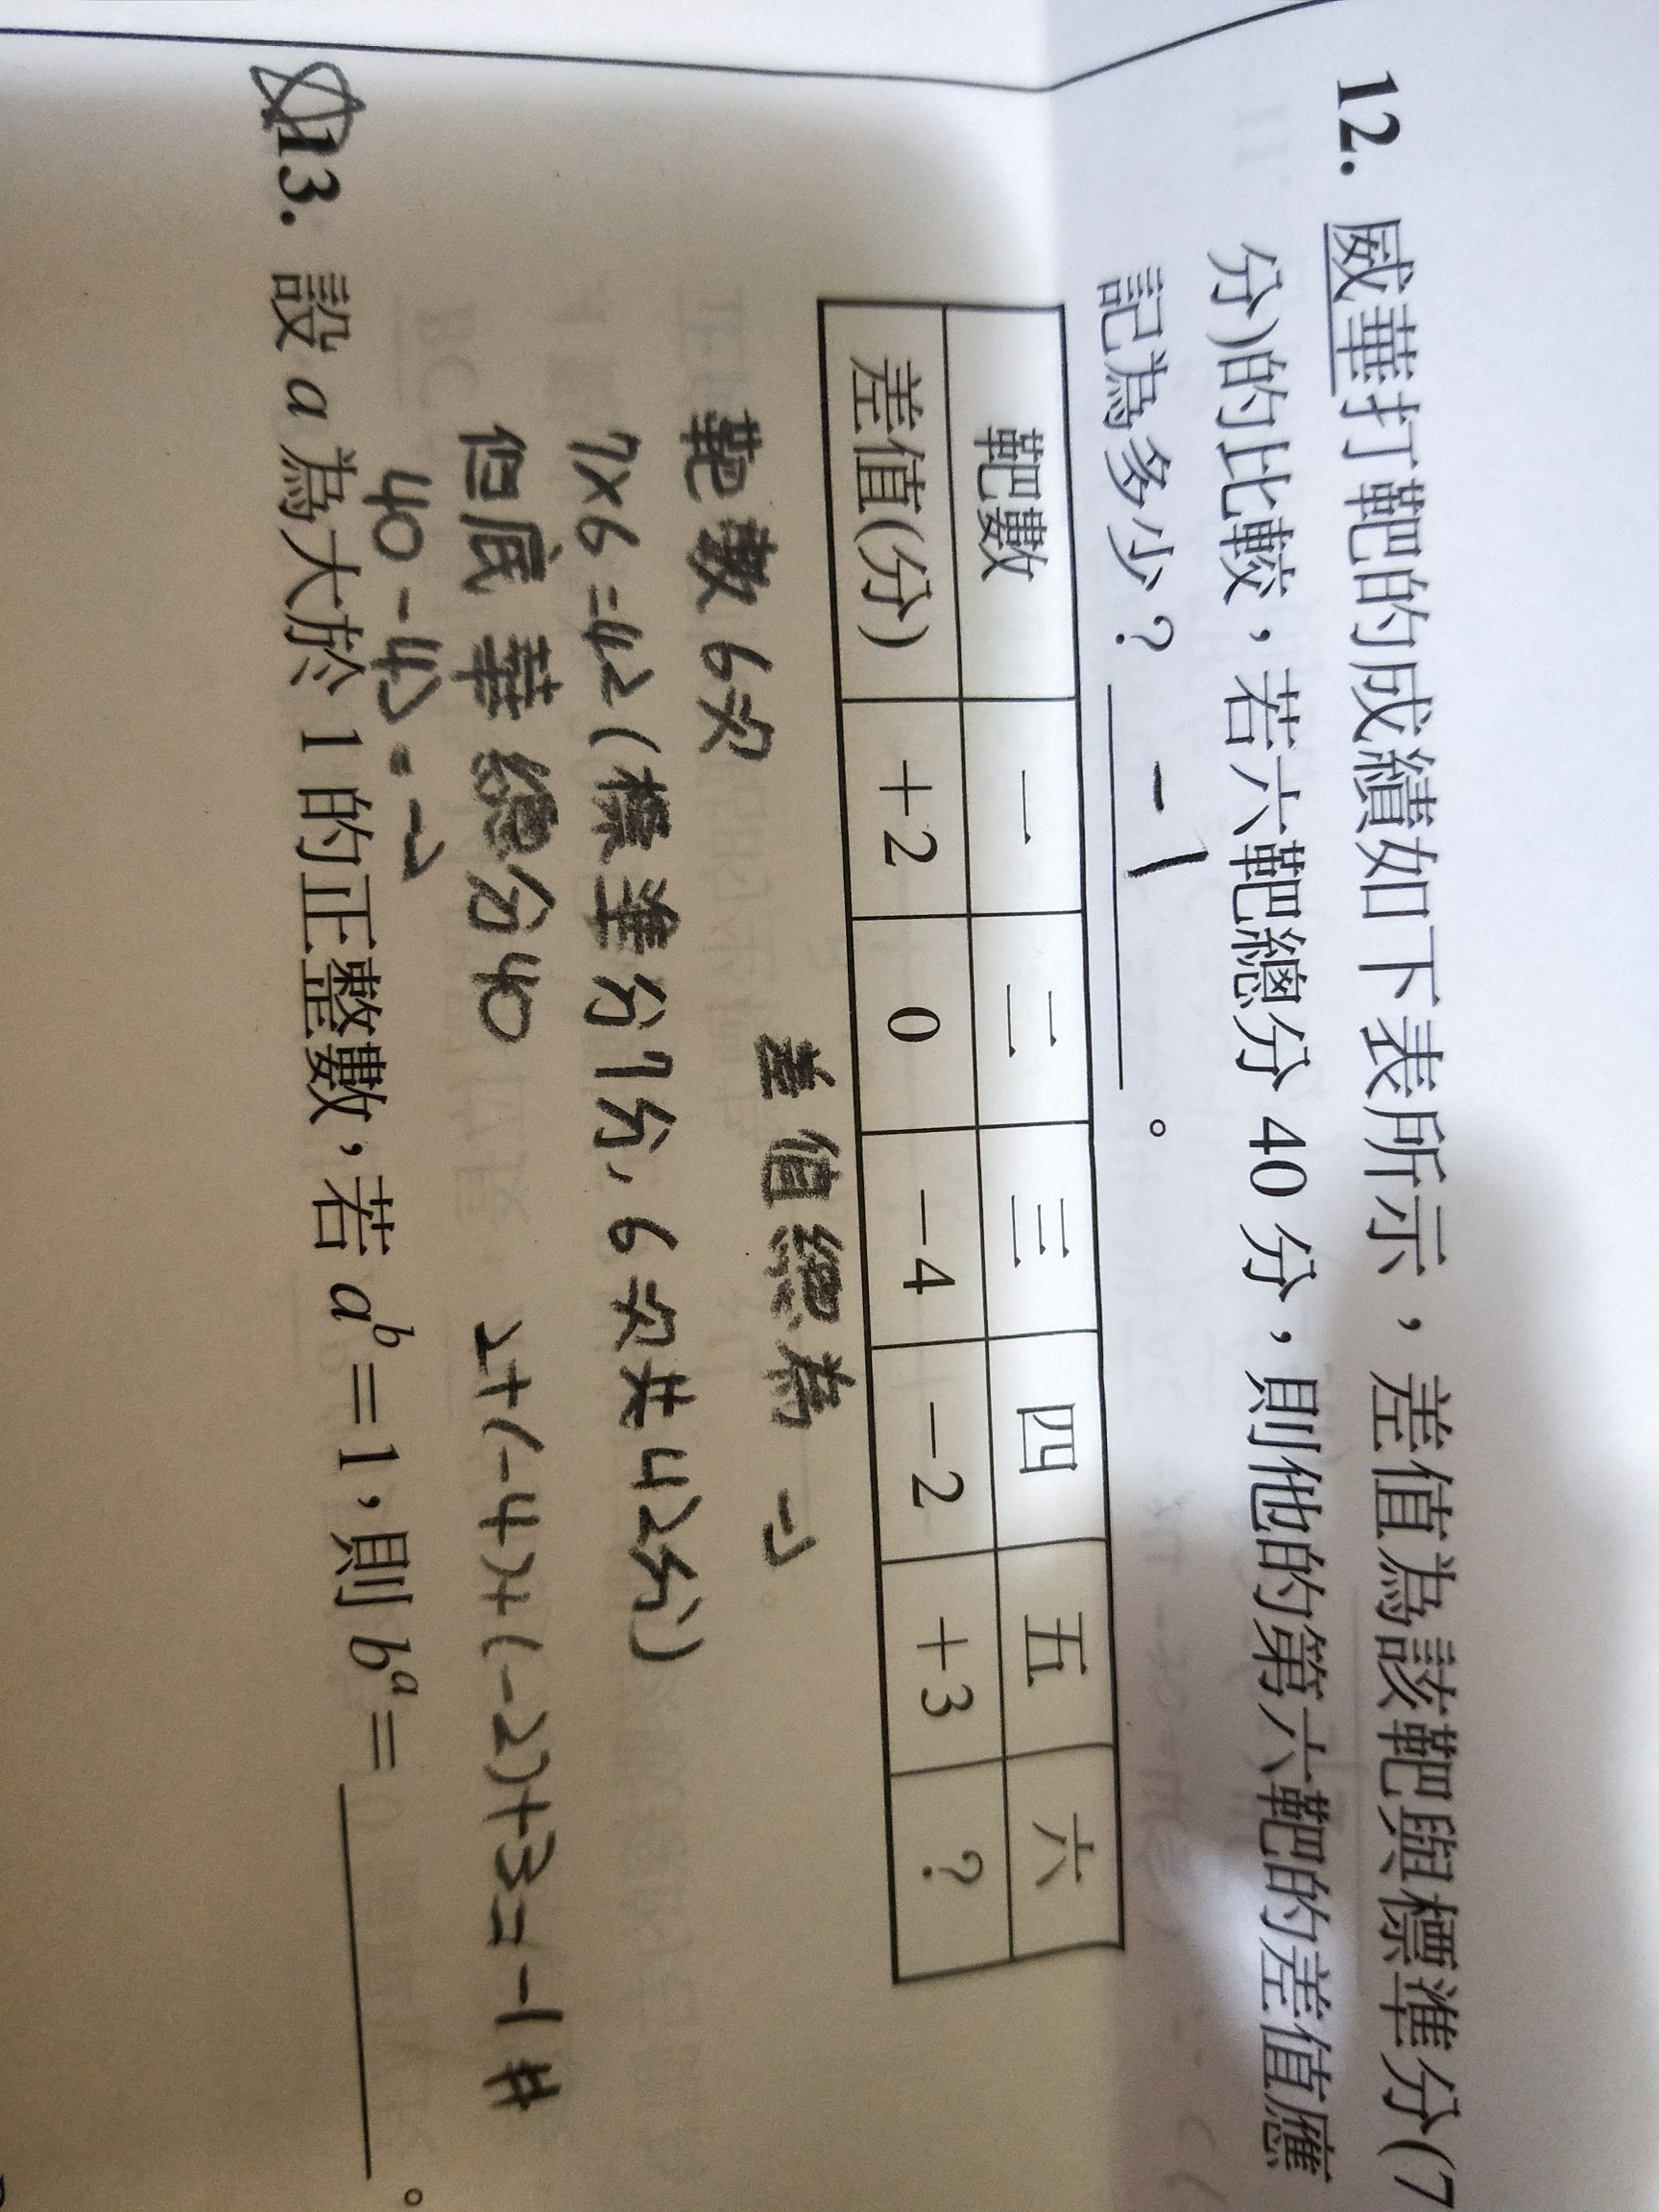 12. 威華打靶的成績如下表所示，差值為該靶與標準分(7
分)的比較，若六靶總分 40 分，則他的第六靶的差值應
記為多少？ -1 。
靶數 一 二 三 四 五 六
差值(分) +2 0 -4 -2 +3 ?
差值總為 -2
靶數6次
7×6=42(標準分7分，6次共42分)
但底華總分40 2+(-4)+(-2)+3=-1#
40-42=-2
13. 設 a 為大於 1 的正整數，若 aᵇ=1，則 bᵃ= 。